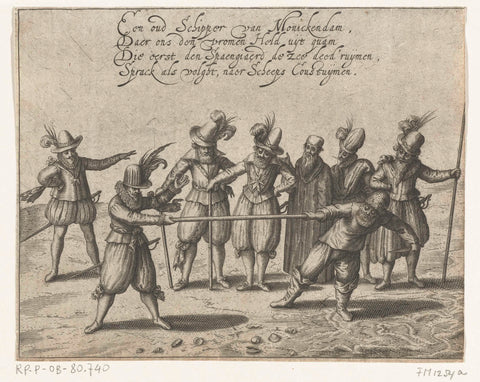 Een oud Schipper van Monickendam,
Daer ons den vromen Held uyt quam
Die eerst den Spaengiaerd de zee deed ruymen,
Sprack als volght, naer Scheeps Coustuymen.
RP-P-OB-80.740
FM 1254a